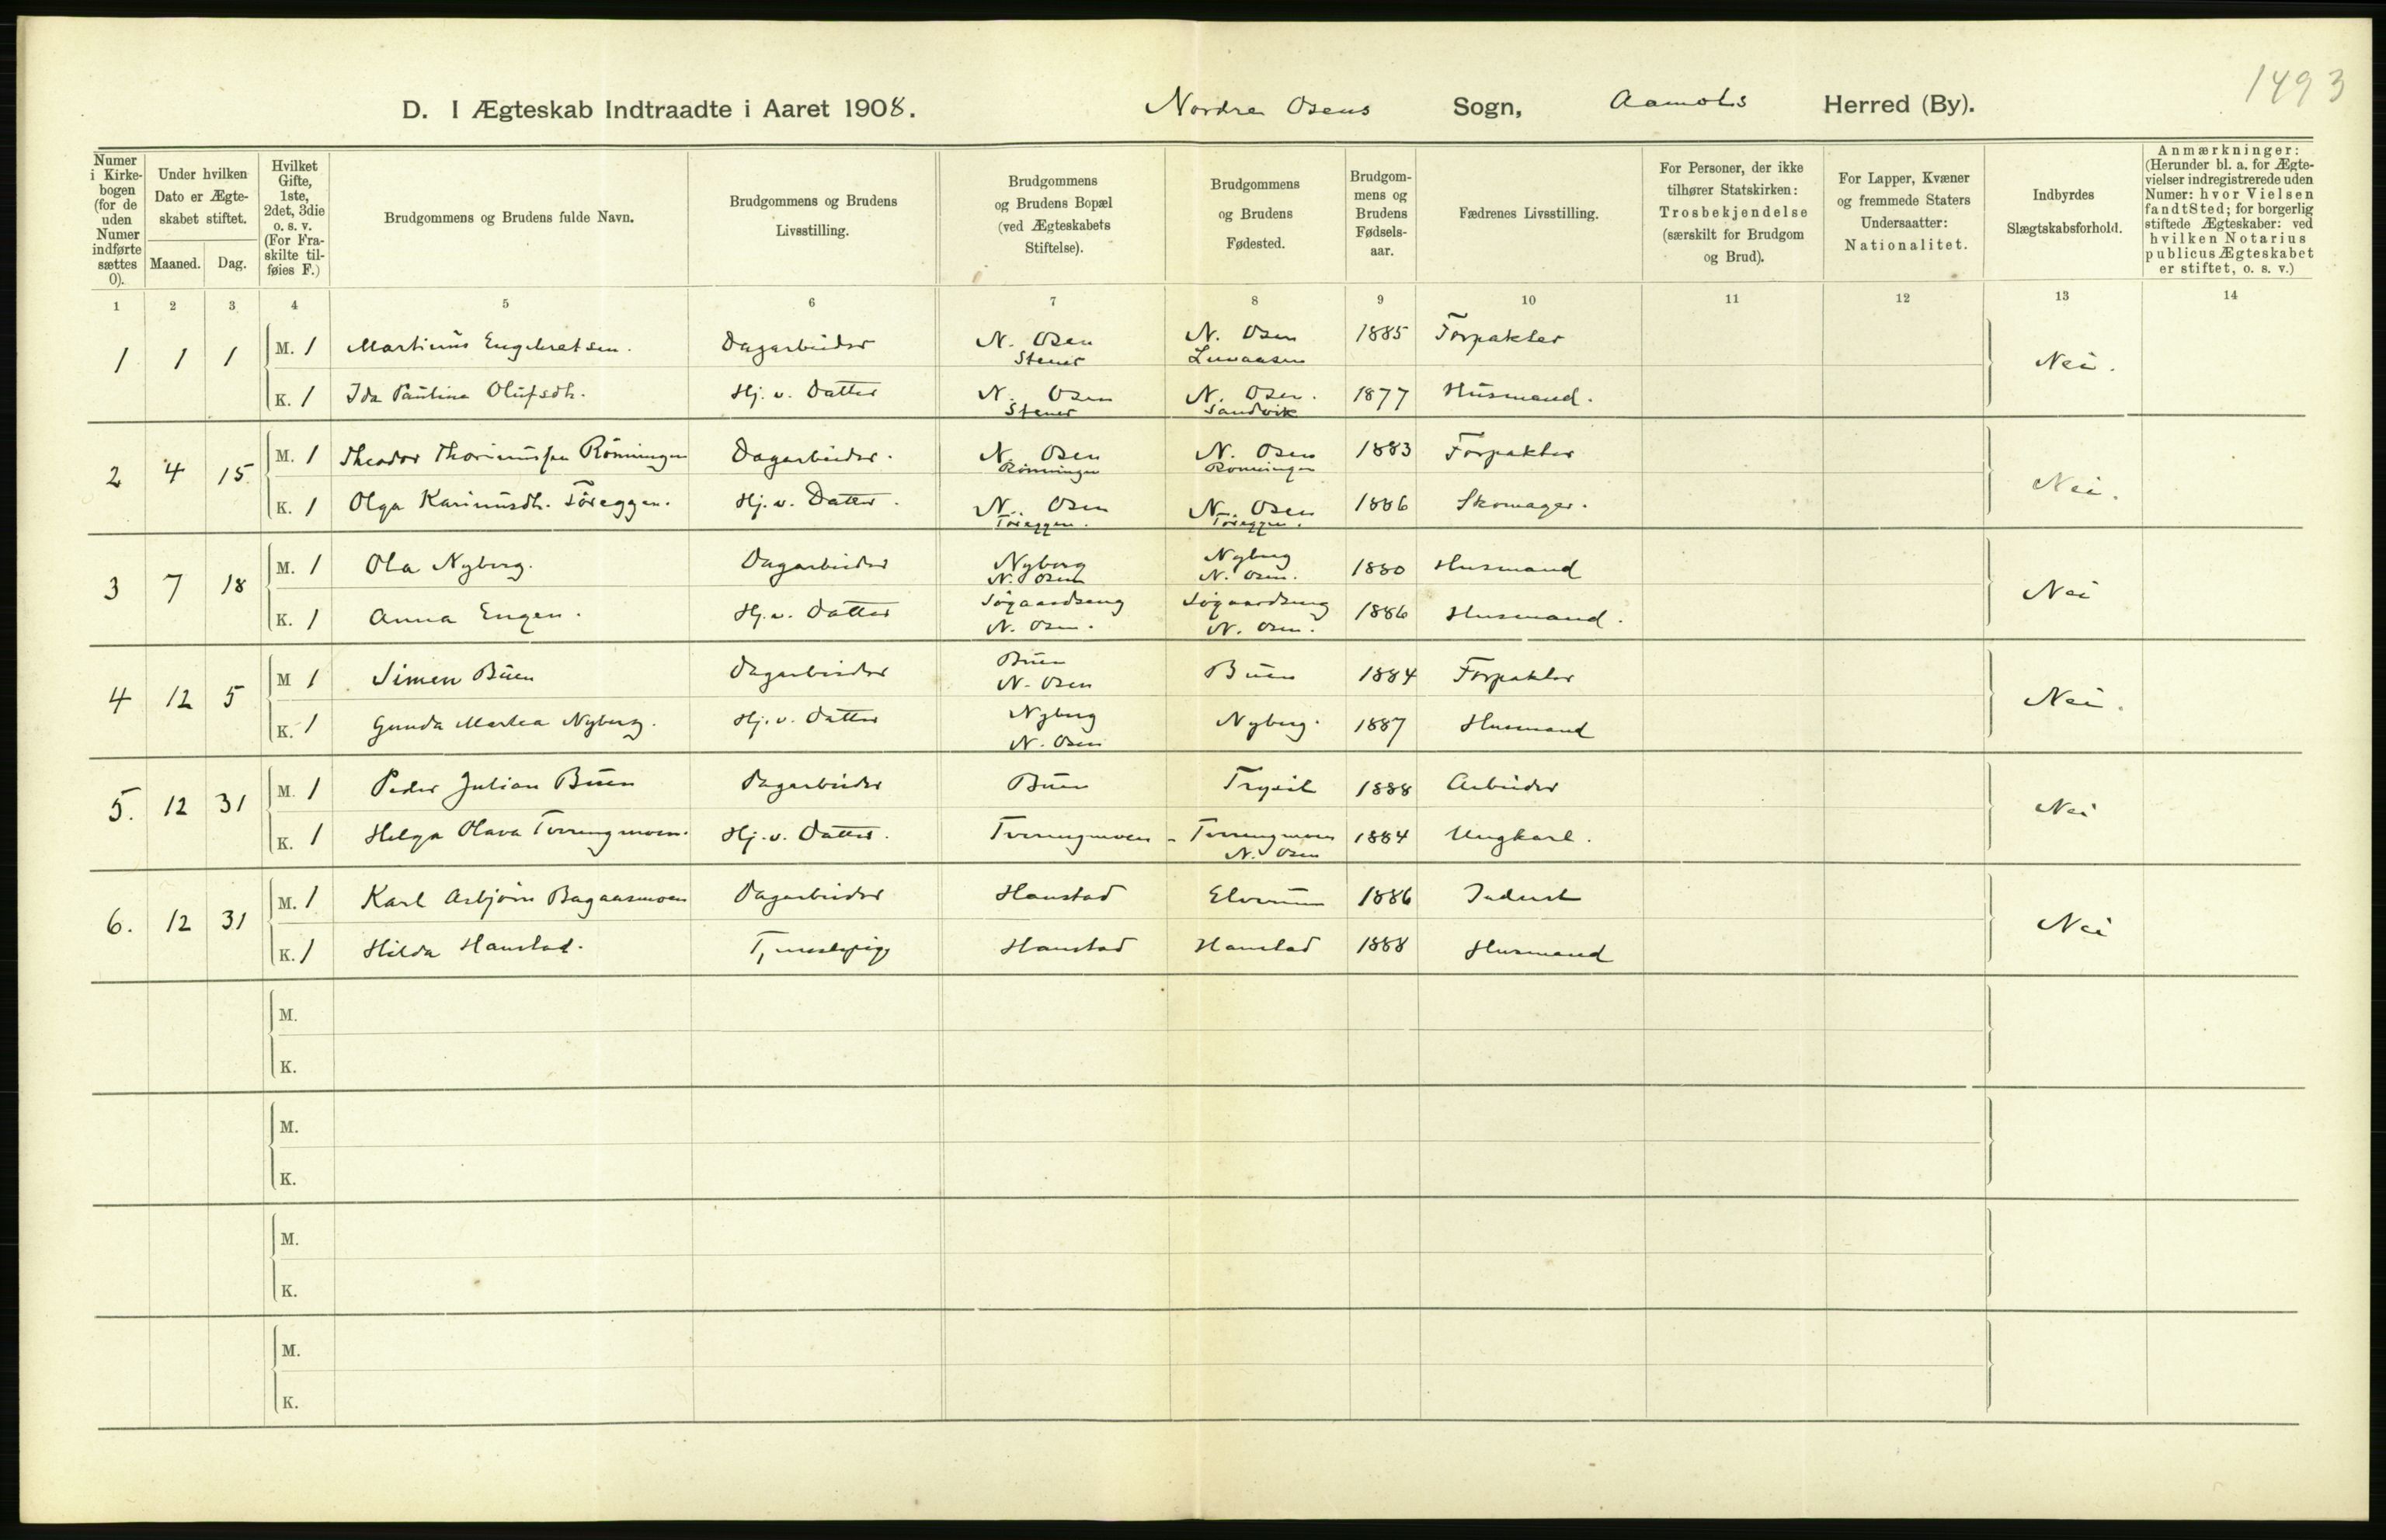 1493
D. I Ægteskab Indtraadte i Aaret 1908. Nordre Osens Sogn, Aamots Herred (By).
Numer i Kirkebogen (for de uden Numer indførte sættes 0).
Under hvilken Dato er Ægteskabet stiftet.
Maaned. Dag.
Hvilket Gifte, 1ste, 2det, 3die o. s. v. (For Fraskilte tilføies F.)
Brudgommens og Brudens fulde Navn.
Brudgommens og Brudens Livsstilling.
Brudgommens og Brudens Bopæl (ved Ægteskabets Stiftelse).
Brudgommens og Brudens Fødested.
Brudgommens og Brudens Fødselsaar.
Fædrenes Livsstilling.
For Personer, der ikke tilhører Statskirken: Trosbekjendelse (særskilt for Brudgom og Brud).
For Lapper, Kvæner og fremmede Staters Undersaatter: Nationalitet.
Indbyrdes Slægtskabsforhold.
Anmærkninger: (Herunder bl. a. for Ægtevielser indregistrerede uden Numer: hvor Vielsen fandt Sted; for borgerlig stiftede Ægteskaber: ved hvilken Notarius publicus Ægteskabet er stiftet, o. s. v.)
1 2 3 4 5 6 7 8 9 10 11 12 13 14
1 1 1 M. 1 Martinus Engebretsen. Dagarbeider N. Osen Stener N. Osen 1885 Forpakter Nei.
K. 1 Ida Paulina Olufsdt. Hj. v. Datter N. Osen Stener N. Osen. Sandvik 1877 Husmand.
2 4 15. M. 1 Theodor Thorinussen Rönningen Dagarbeider. N. Osen Rönningen N. Osen Rönningen 1883 Forpakter Nei.
K. 1 Olga Karinusdt. Töreggen. Hj. v. Datter. N. Osen Töreggen. N. Osen Töreggen. 1886 Skomager.
3 7 18 M. 1 Ola Nyberg. Dagarbeider Nyberg N. Osen Nyberg N. Osen. 1880 Husmand Nei
K. 1 Anna Engen. Hj. v. Datter Søgaardseng N. Osen. Søgaardseng N. Osen. 1886 Husmand.
4 12 5 M 1 Simen Buen Dagarbeider Buen N. Osen Buen 1884 Forpakter Nei.
K. 1 Gunda Martea Nyberg. Hj. v. Datter Nyberg N. Osen Nyberg. 1887 Husmand
5. 12 31 M. 1 Peder Julian Buen Dagarbeider Buen Trysil 1888 Arbeider Nei
K. 1 Helga Olava Tverrengmoen. Hj. v. Datter. Tverrengmoen - Tverrengmoen N. Osen 1884 Ungkarl.
6. 12 31 M. 1 Karl Asbjörn Bagaasmoen Dagarbeider Hanstad Elverum 1886 Inderst Nei
K. 1 Hilda Hanstad. Tjenestepige Hanstad Hanstad 1888 Husmand
M.
K.
M.
K.
M.
K.
M.
K.